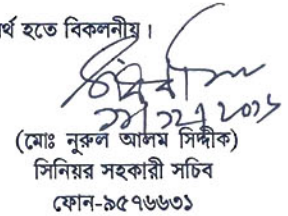 র্থ হতে বিকলনীয়।
(মোঃ নুরুল আলম সিদ্দীক)
সিনিয়র সহকারী সচিব
ফোন-৯৫৭৬৬৩১